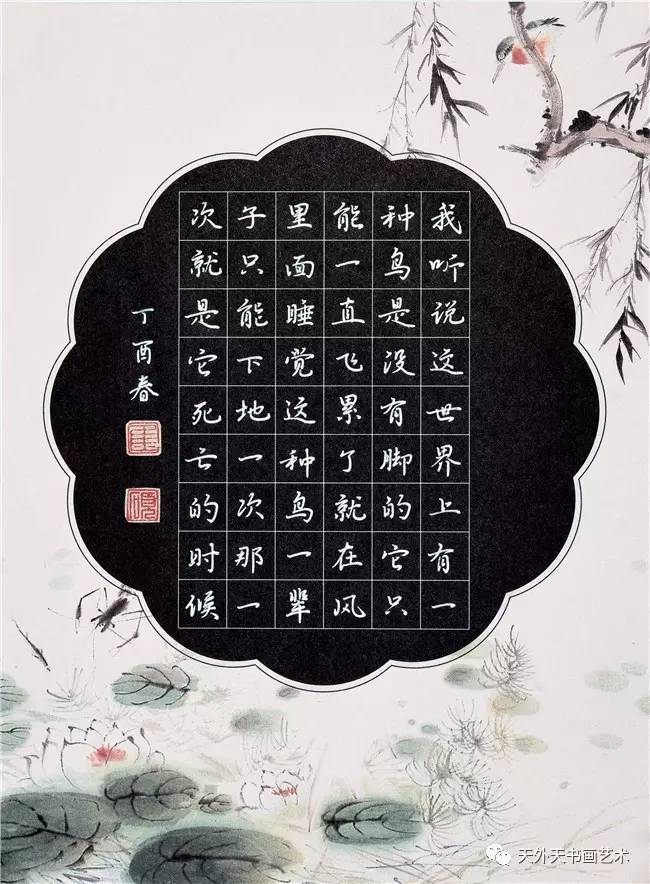 我听说这世界上有一
种鸟是没有脚的它只
能一直飞累了就在风
里面睡觉这种鸟一辈
子只能下地一次那一
次就是它死亡的时候
丁酉春
天外天书画艺术